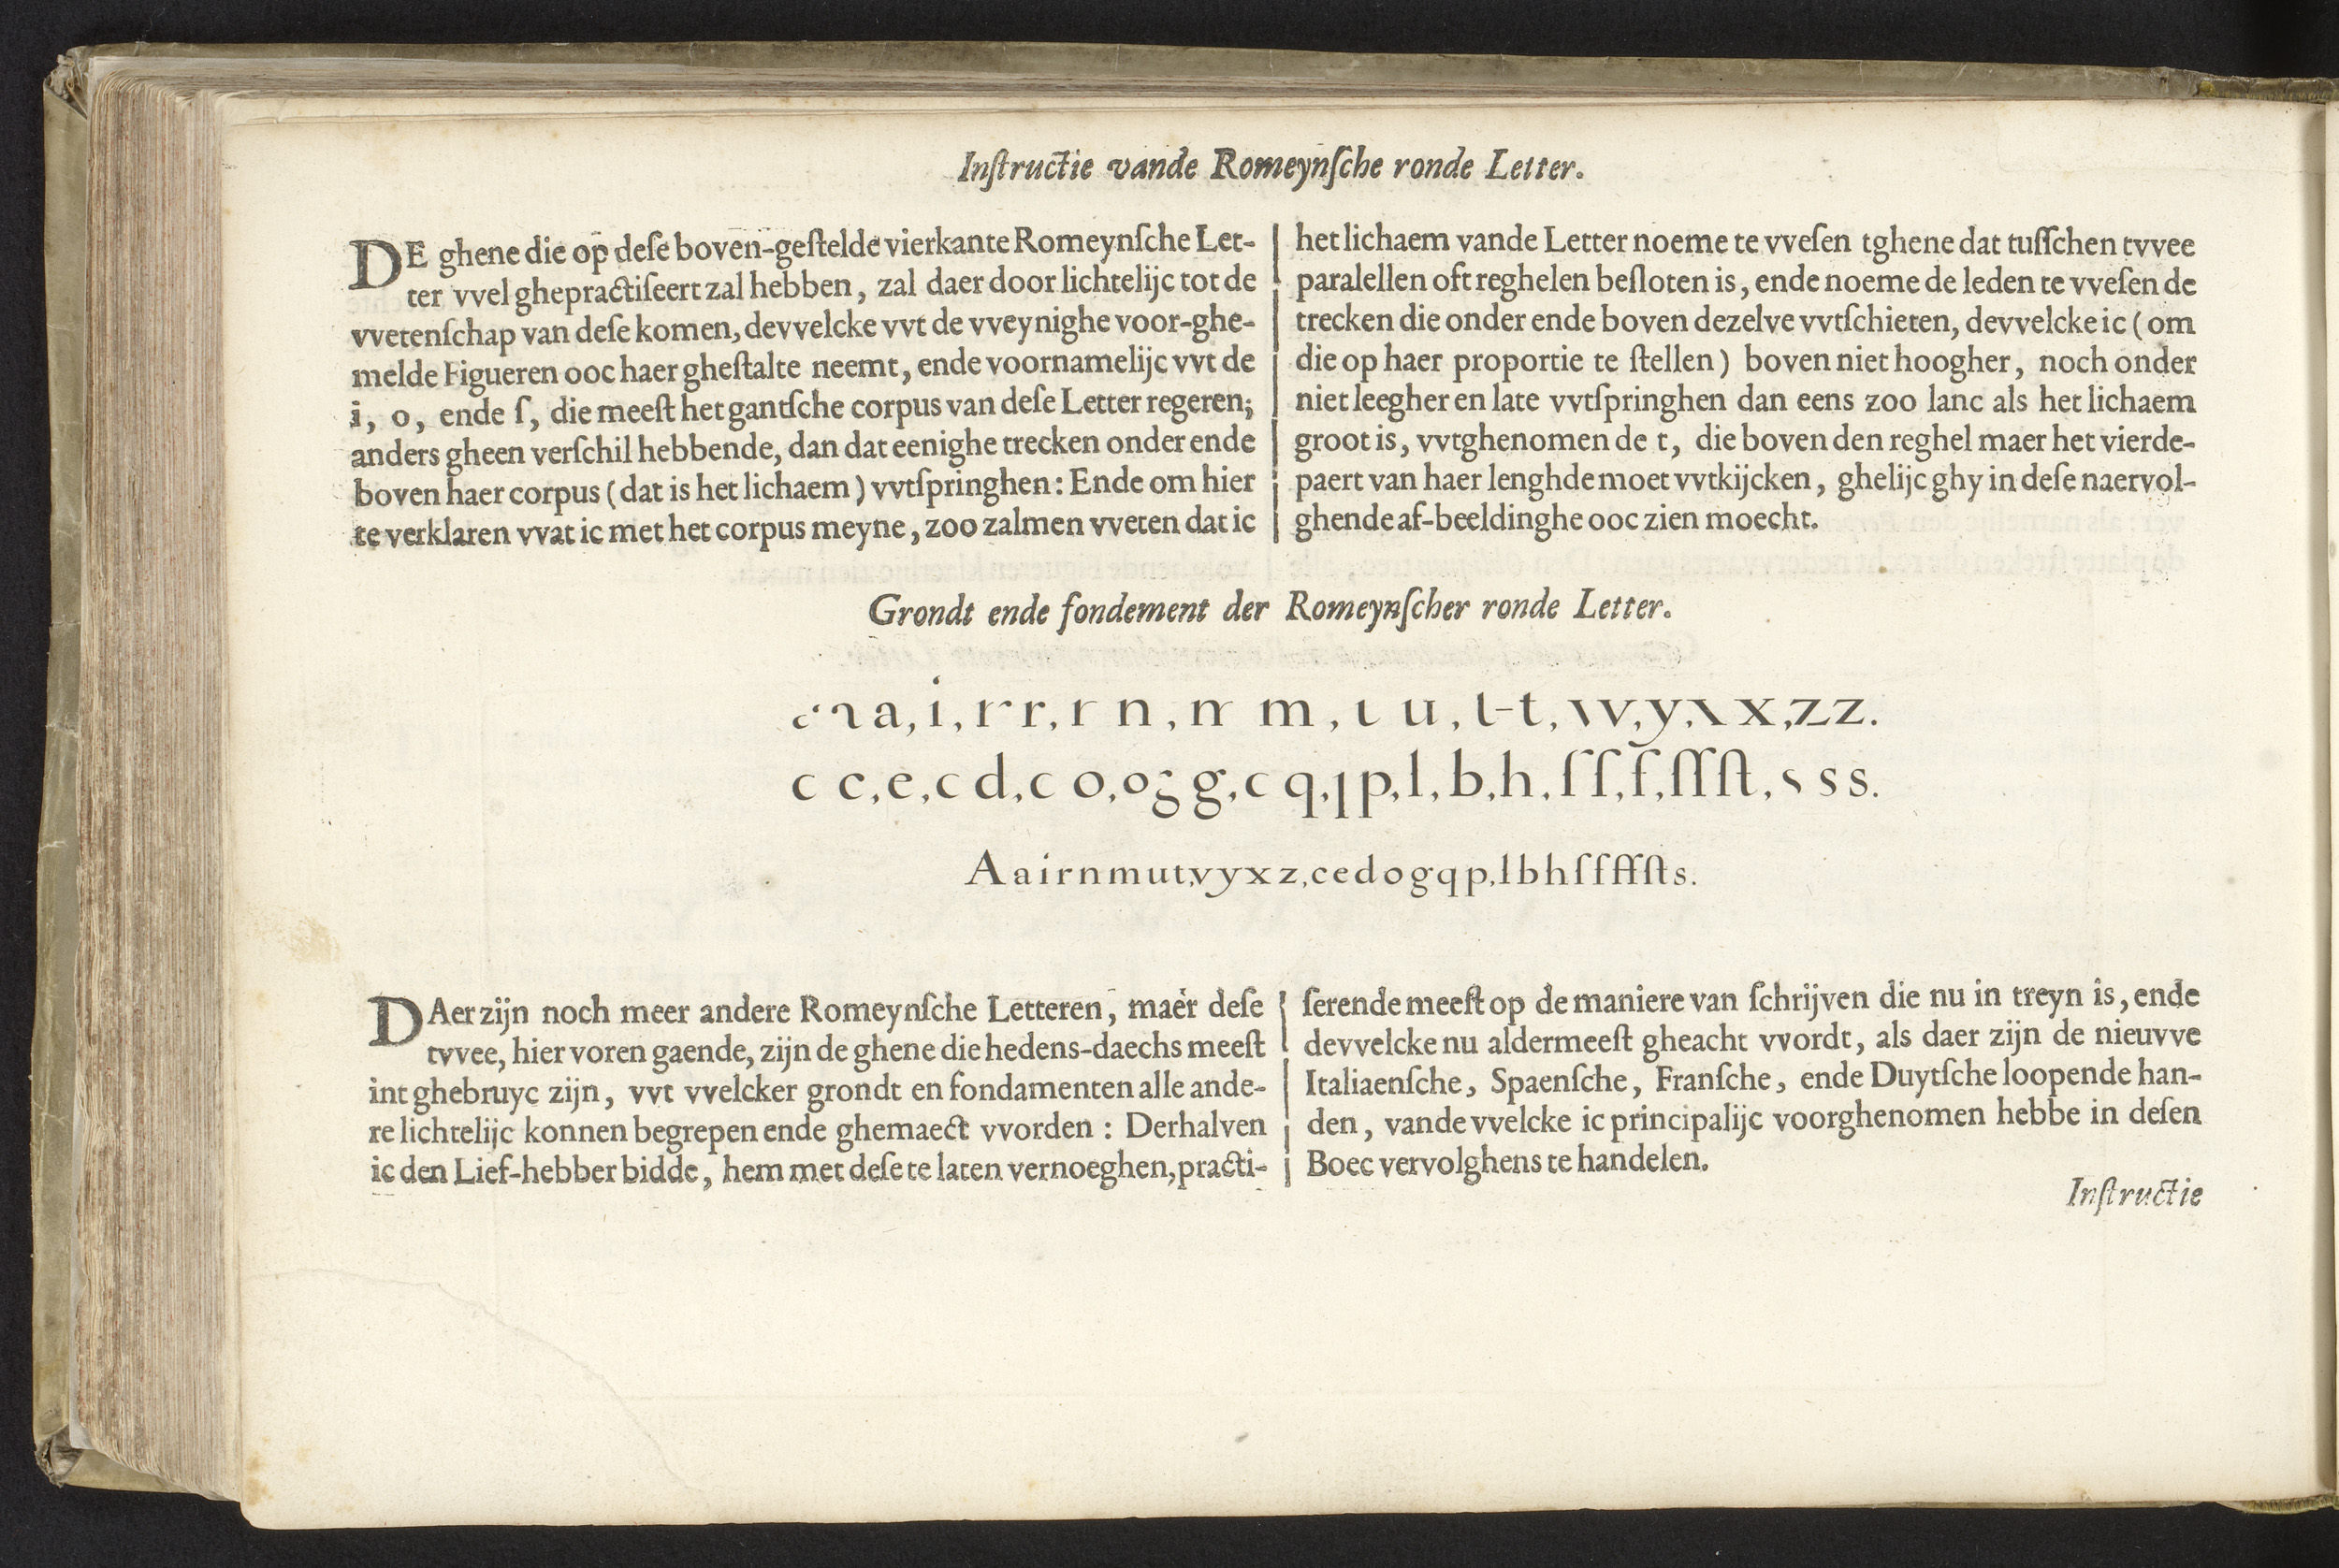 Inſtructie vande Romeynſche ronde Letter.
DE ghene die op deſe boven-geſtelde vierkante Romeynſche Let-
ter vvel ghepractiſeert zal hebben, zal daer door lichtelijc tot de
vvetenſchap van deſe komen, devvelcke vvt de vveynighe voor-ghe-
melde Figueren ooc haer gheſtalte neemt, ende voornamelijc vvt de
i, o, ende ſ, die meeſt het gantſche corpus van deſe Letter regeren;
anders gheen verſchil hebbende, dan dat eenighe trecken onder ende
boven haer corpus (dat is het lichaem) vvtſpringhen: Ende om hier
te verklaren vvat ic met het corpus meyne, zoo zalmen vveten dat ic
het lichaem vande Letter noeme te vveſen tghene dat tuſſchen tvvee
paralellen oft reghelen beſloten is, ende noeme de leden te vveſen de
trecken die onder ende boven dezelve vvtſchieten, devvelcke ic (om
die op haer proportie te ſtellen) boven niet hoogher, noch onder
niet leegher en late vvtſpringhen dan eens zoo lanc als het lichaem
groot is, vvtghenomen de t, die boven den reghel maer het vierde-
paert van haer lenghde moet vvtkijcken, ghelijc ghy in deſe naervol-
ghende af-beeldinghe ooc zien moecht.
Grondt ende fondement der Romeynſcher ronde Letter.
a, i, r r, r n, n m, ı u, t-t, v, y, x, z z.
c c, e, c d, c o, o g, c q, p, l, b, h, ſ ſ, f, ſſ ſt, s s s.
A a i r n m u t, v y x z, c e d o g q p, l b h ſ f ff ſt s.
DAer zijn noch meer andere Romeynſche Letteren, maer deſe
tvvee, hier voren gaende, zijn de ghene die hedens-daechs meeſt
int ghebruyc zijn, vvt vvelcker grondt en fondamenten alle ande-
re lichtelijc konnen begrepen ende ghemaect vvorden: Derhalven
ic den Lief-hebber bidde, hem met deſe te laten vernoeghen, practi-
ſerende meeſt op de maniere van ſchrijven die nu in treyn is, ende
devvelcke nu aldermeeſt gheacht vvordt, als daer zijn de nieuvve
Italiaenſche, Spaenſche, Franſche, ende Duytſche loopende han-
den, vande vvelcke ic principalijc voorghenomen hebbe in deſen
Boec vervolghens te handelen.
Inſtructie